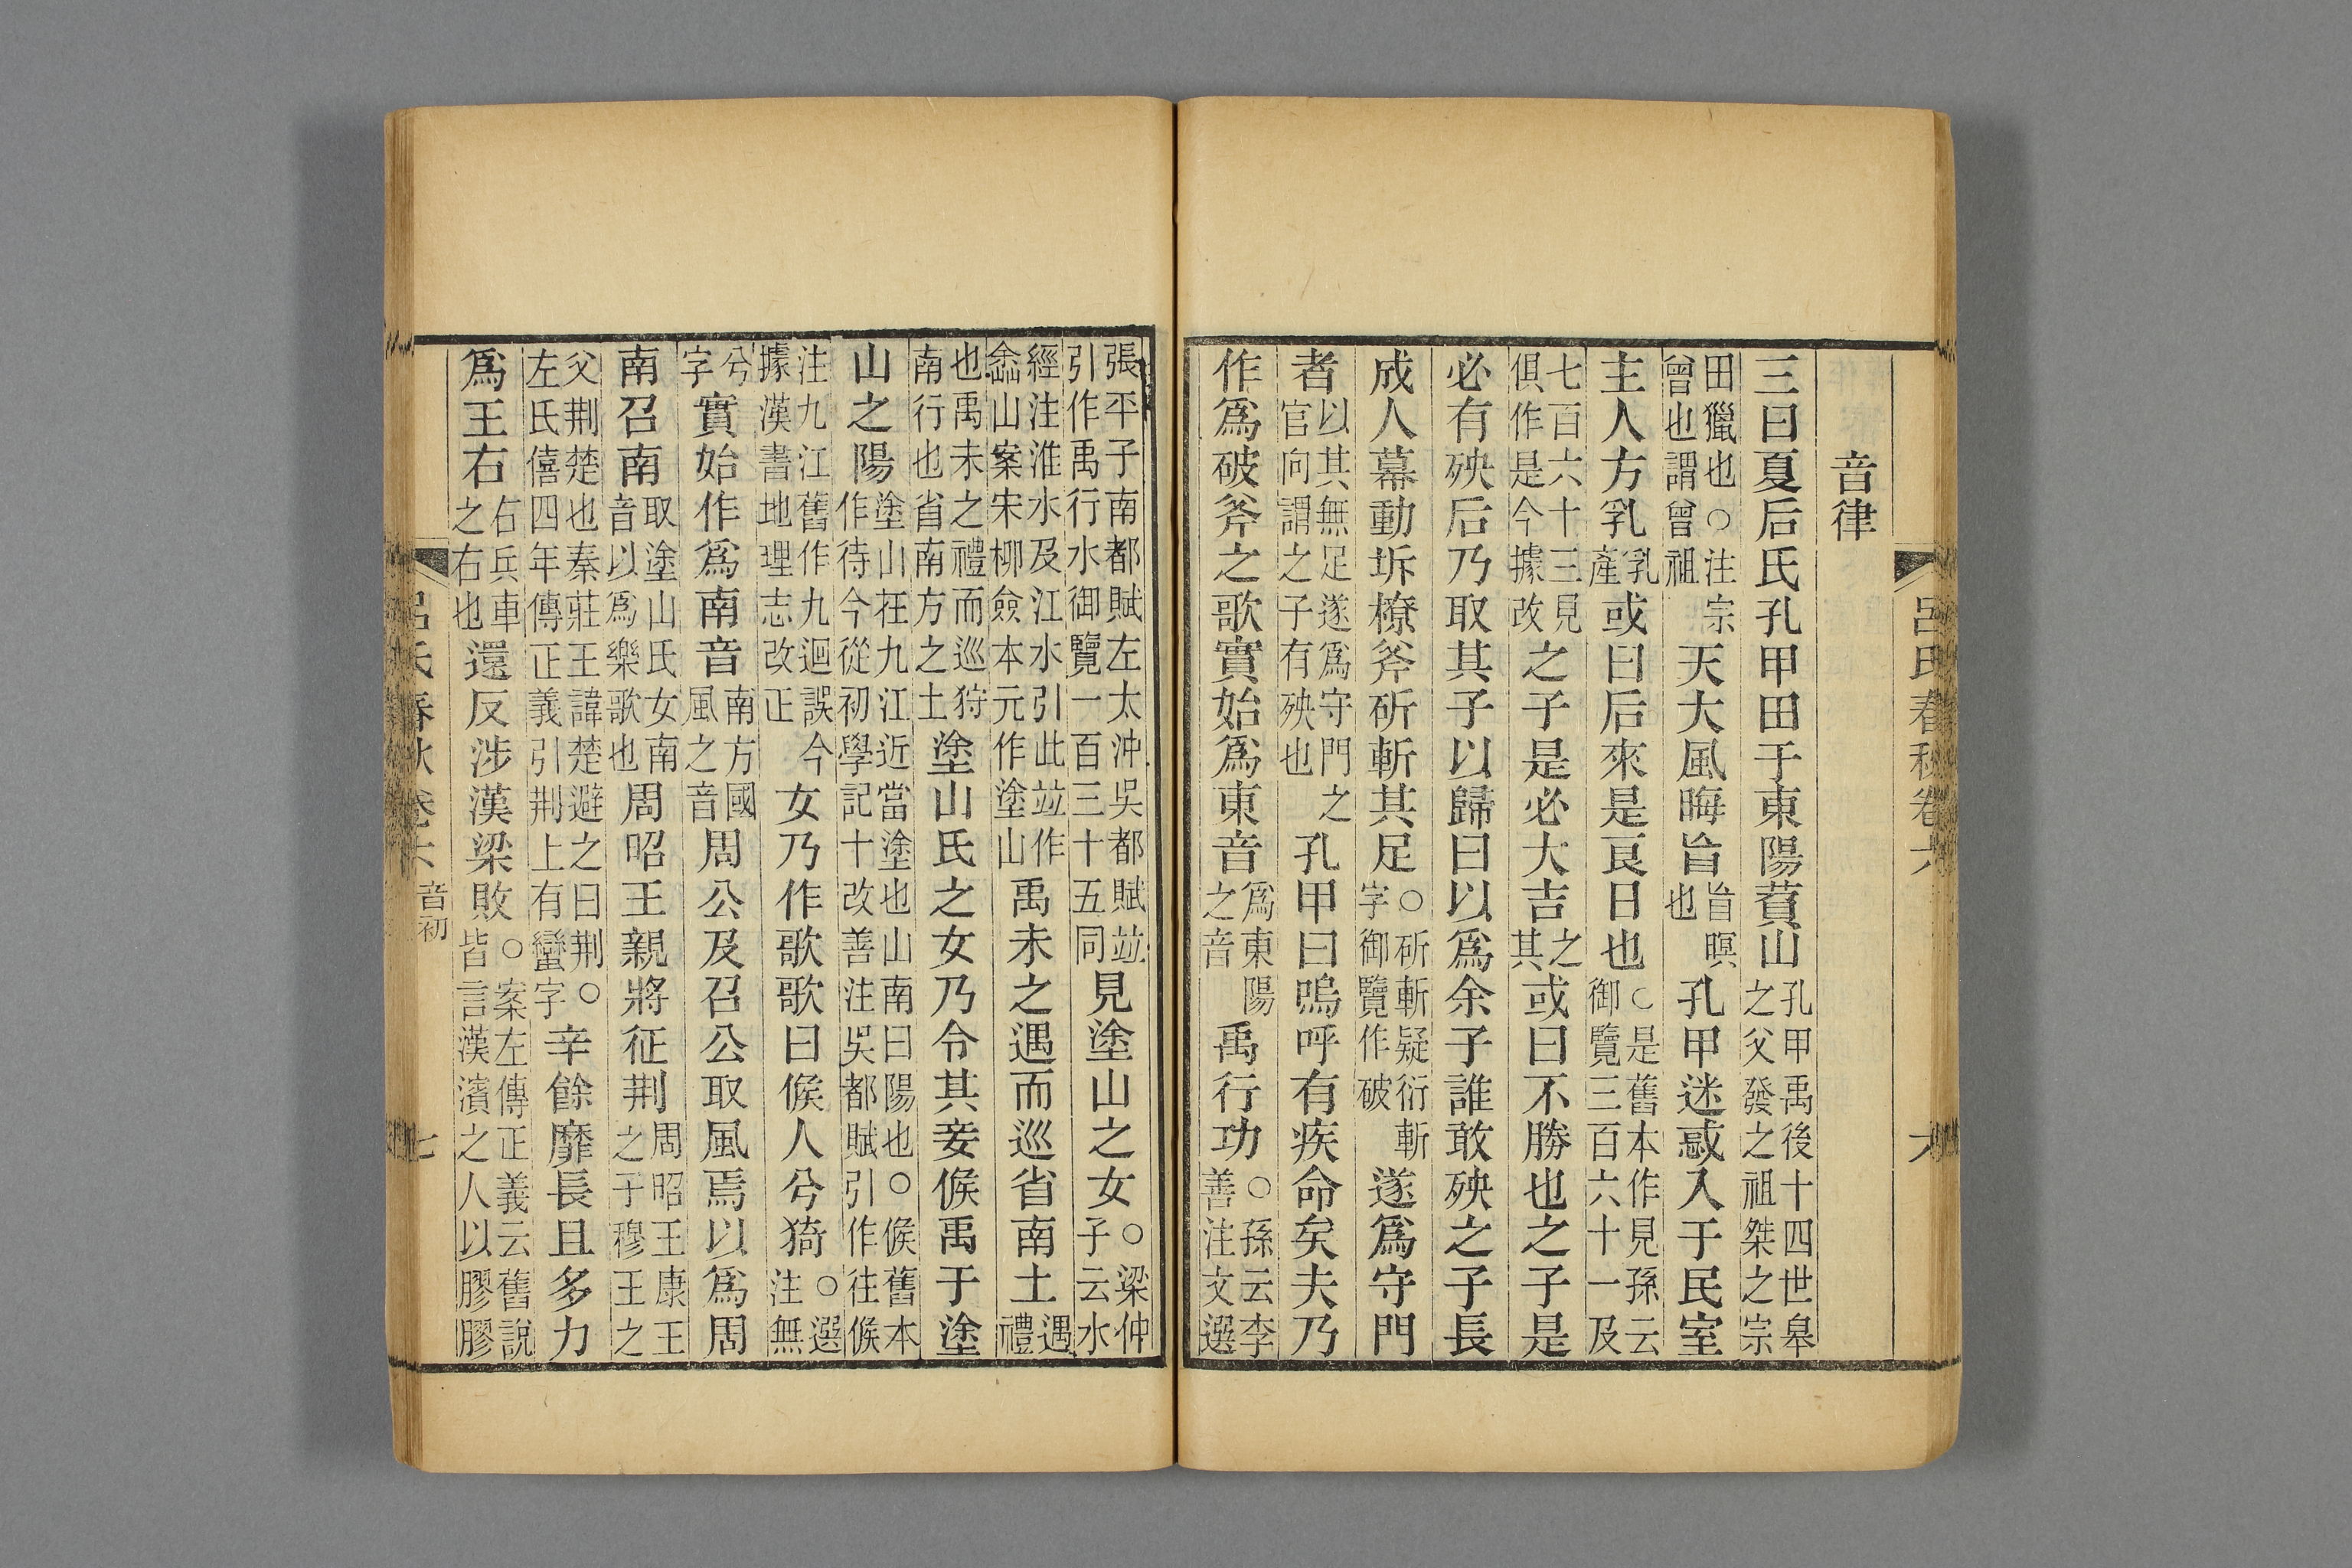 呂氏春秋卷六
六
音律
三曰夏后氏孔甲田于東陽萯山孔甲禹後十四世皋之父發之祖桀之宗
田獵也○注宗曾也謂曾祖天大風晦盲盲暝也孔甲迷惑入于民室
主人方乳乳產或曰后來是良日也○是舊本作見孫云御覽三百六十一及
七百六十三見俱作是今據改之子是必大吉之其或曰不勝也之子是
必有殃后乃取其子以歸曰以爲余子誰敢殃之子長
成人幕動坼橑斧斫斬其足○斫斬疑衍斬字御覽作破遂爲守門
者以其無足遂爲守門之官向謂之子有殃也孔甲曰嗚呼有疾命矣夫乃
作爲破斧之歌實始爲東音爲東陽之音禹行功○孫云李善注文選
張平子南都賦左太沖吳都賦竝引作禹行水御覽一百三十五同見塗山之女○梁仲子云水
經注淮水及江水引此竝作嵞山案宋柳僉本元作塗山禹未之遇而巡省南土遇禮
也禹未之禮而巡狩南行也省南方之土塗山氏之女乃令其妾候禹于塗
山之陽塗山在九江近當塗也山南曰陽也○候舊本作待今從初學記十改善注吳都賦引作往候
注九江舊作九迴誤今據漢書地理志改正女乃作歌歌曰候人兮猗○選注無
兮字實始作爲南音南方國風之音周公及召公取風焉以爲周
南召南取塗山氏女南音以爲樂歌也周昭王親將征荆周昭王康王之子穆王之
父荆楚也秦莊王諱楚避之曰荆○左氏僖四年傳正義引荆上有蠻字辛餘靡長且多力
爲王右右兵車之右也還反涉漢梁敗○案左傳正義云舊說皆言漢濱之人以膠膠
呂氏春秋卷六
音初
七